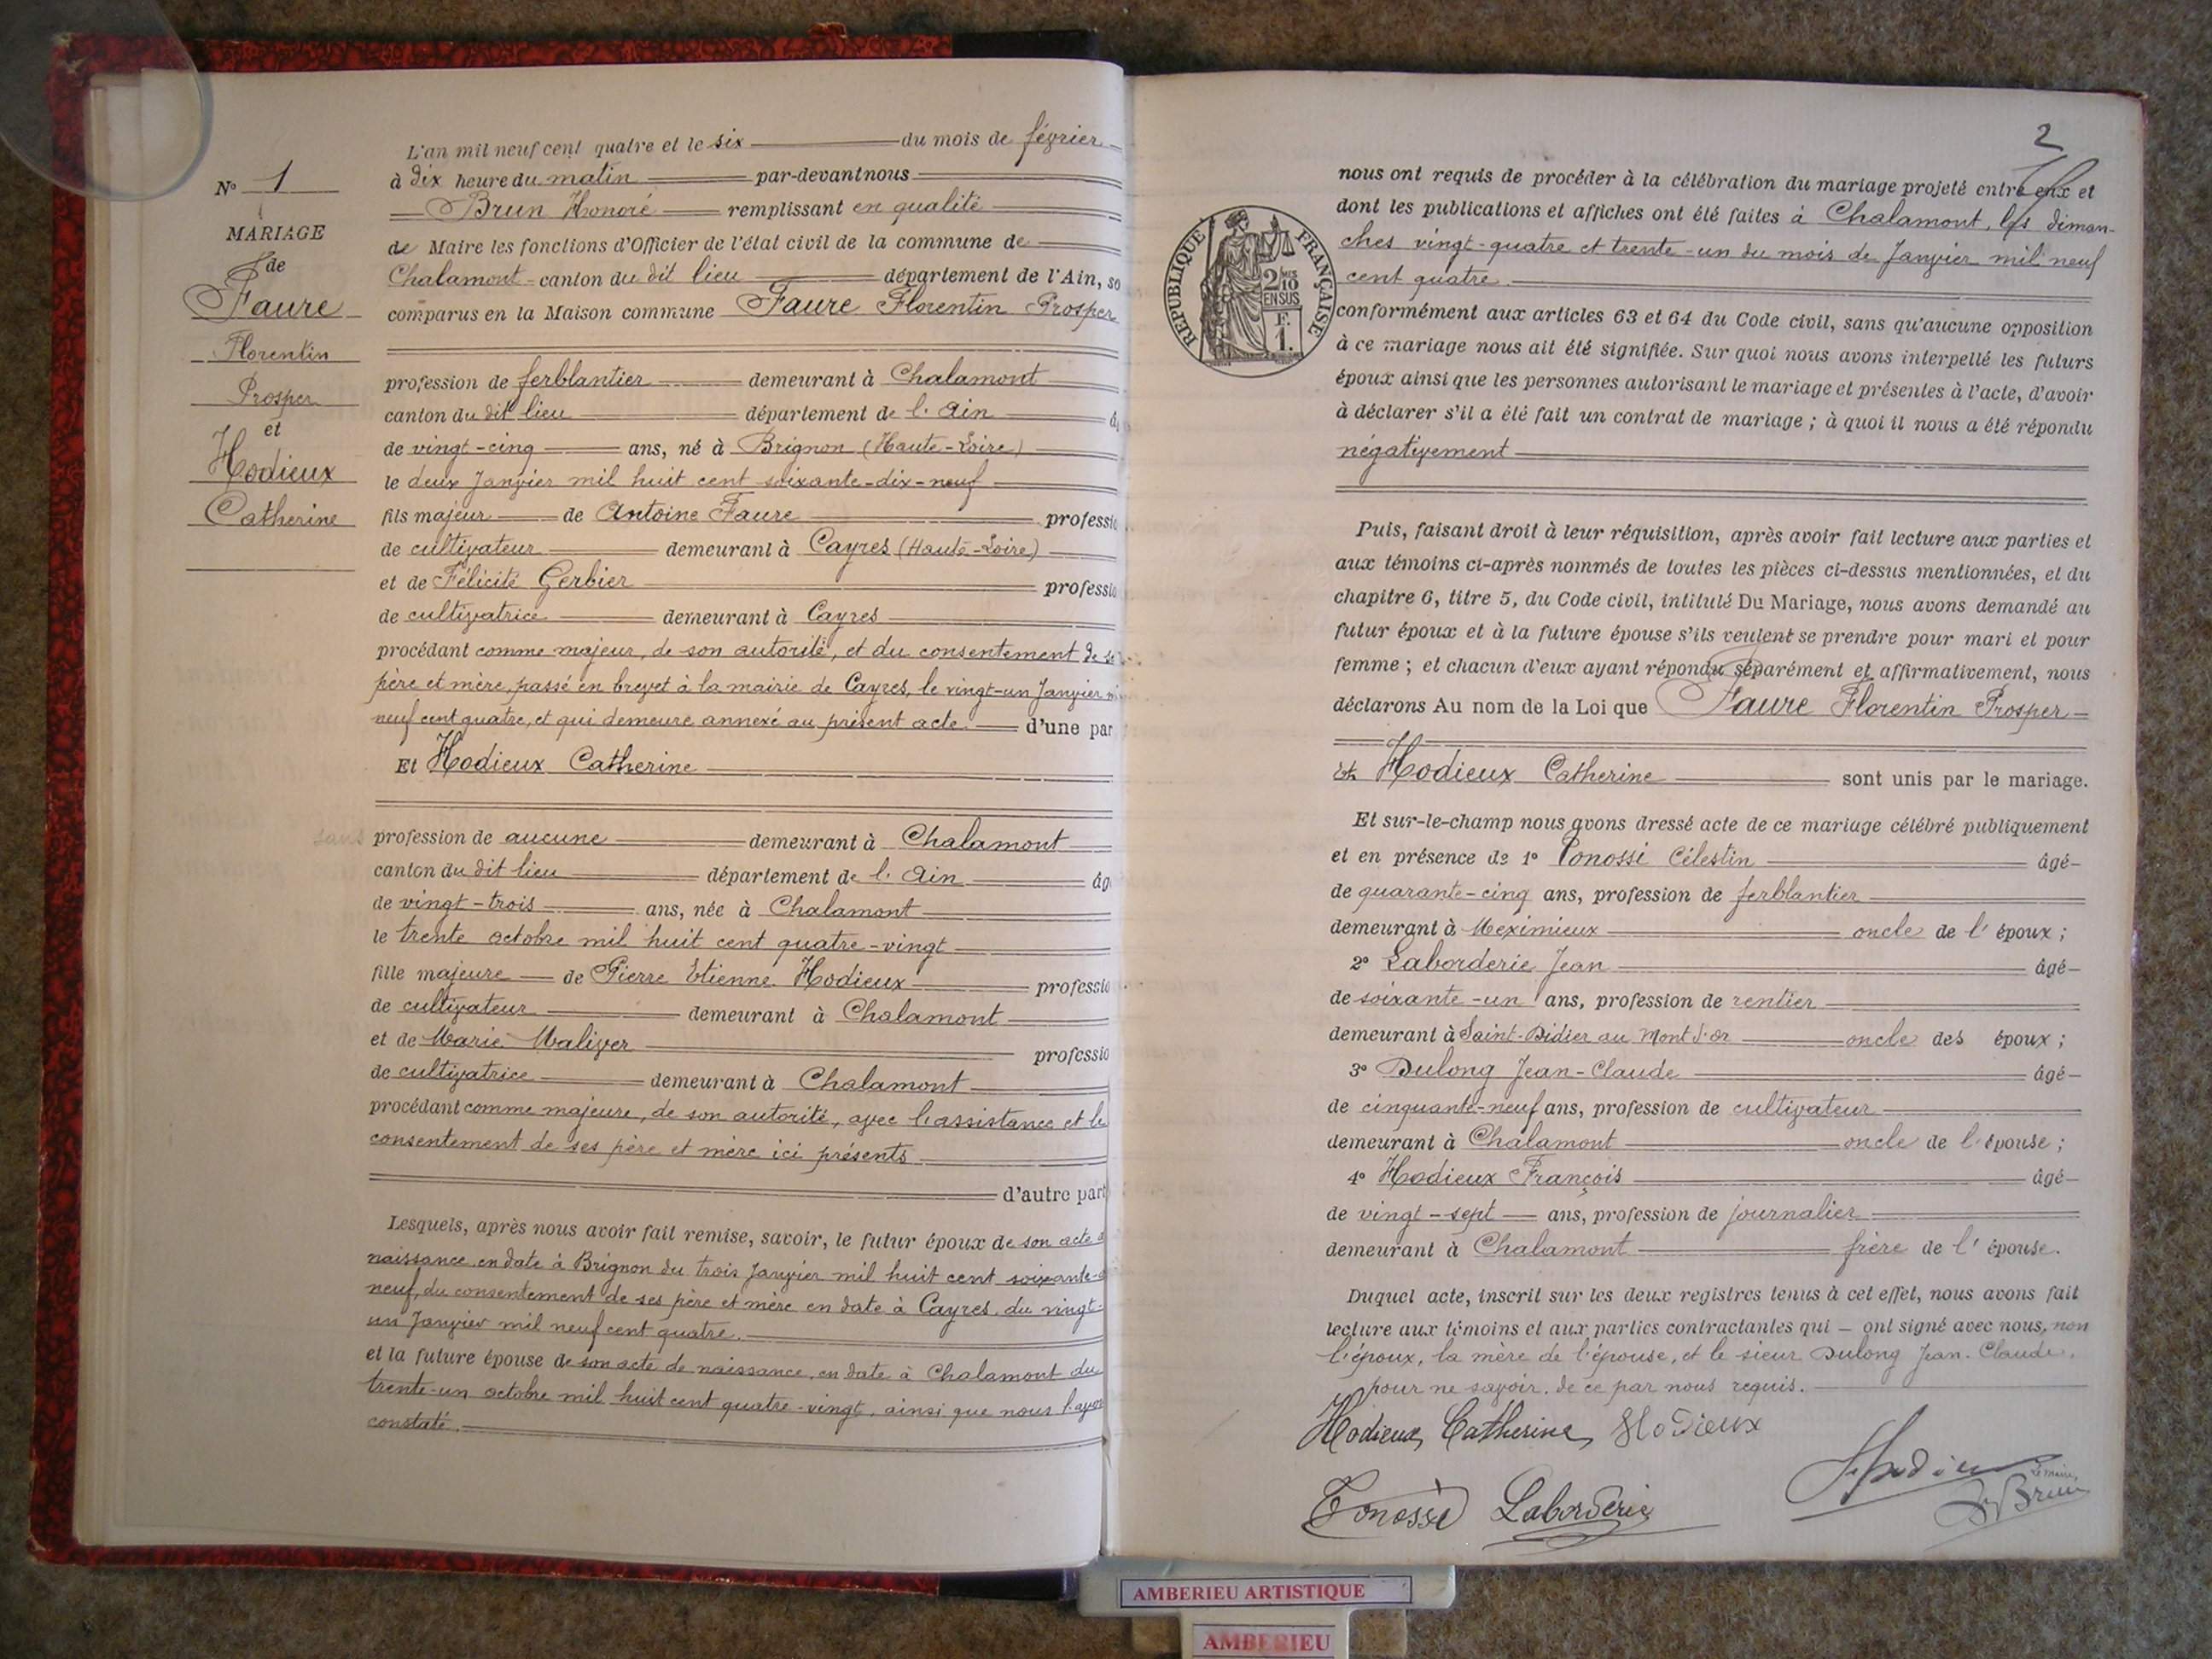 L'an mil neuf cent quatre et le six du mois de février
à dix heure du matin par-devant nous
Brun Honoré remplissant en qualité
de Maire les fonctions d'Officier de l'état civil de la commune de
Chalamont - canton du dit lieu département de l'Ain, so
comparus en la Maison commune Faure Florentin Prosper
profession de ferblantier demeurant à Chalamont
canton du dit lieu département de l'Ain â
de vingt-cinq ans, né à Brignon (Haute-Loire)
le deux Janvier mil huit cent soixante-dix-neuf
fils majeur de Antoine Faure professio
de cultivateur demeurant à Cayres (Haute-Loire)
et de Félicité Gerbier professio
de cultivatrice demeurant à Cayres
procédant comme majeur, de son autorité, et du consentement de se
père et mère, passé en brevet à la mairie de Cayres, le vingt-un Janvier mi
neuf cent quatre, et qui demeure annexé au présent acte d'une par
Et Hodieux Catherine
sans profession de aucune demeurant à Chalamont
canton du dit lieu département de l'Ain âg
de vingt-trois ans, née à Chalamont
le trente octobre mil huit cent quatre-vingt
fille majeure de Pierre Etienne Hodieux professio
de cultivateur demeurant à Chalamont
et de Marie Maliver professio
de cultivatrice demeurant à Chalamont
procédant comme majeure, de son autorité, avec l'assistance et le
consentement de ses père et mère ici présents
d'autre part
Lesquels, après nous avoir fait remise, savoir, le futur époux de son acte d
naissance en date à Brignon du trois Janvier mil huit cent soixante-d
neuf, du consentement de ses père et mère en date à Cayres du vingt-
un Janvier mil neuf cent quatre.
et la future épouse de son acte de naissance, en date à Chalamont du
trente-un octobre mil huit cent quatre-vingt, ainsi que nous l'avon
constaté.
N° 1
MARIAGE
de
Faure
Florentin
Prosper
et
Hodieux
Catherine
2
nous ont requis de procéder à la célébration du mariage projeté entre eux et
dont les publications et affiches ont été faites à Chalamont, les diman-
ches vingt-quatre et trente-un du mois de Janvier mil neuf
cent quatre.
conformément aux articles 63 et 64 du Code civil, sans qu'aucune opposition
à ce mariage nous ait été signifiée. Sur quoi nous avons interpellé les futurs
époux ainsi que les personnes autorisant le mariage et présentes à l'acte, d'avoir
à déclarer s'il a été fait un contrat de mariage ; à quoi il nous a été répondu
négativement
Puis, faisant droit à leur réquisition, après avoir fait lecture aux parties et
aux témoins ci-après nommés de toutes les pièces ci-dessus mentionnées, et du
chapitre 6, titre 5, du Code civil, intitulé Du Mariage, nous avons demandé au
futur époux et à la future épouse s'ils veulent se prendre pour mari et pour
femme ; et chacun d'eux ayant répondu séparément et affirmativement, nous
déclarons Au nom de la Loi que Faure Florentin Prosper
Et Hodieux Catherine sont unis par le mariage.
Et sur-le-champ nous avons dressé acte de ce mariage célébré publiquement
et en présence de 1° Tonossi Célestin âgé
de quarante-cinq ans, profession de ferblantier
demeurant à Meximieux oncle de l'époux ;
2° Laborderie Jean âgé
de soixante-un ans, profession de rentier
demeurant à Saint-Didier au Mont d'or oncle des époux ;
3° Dulong Jean-Claude âgé
de cinquante-neuf ans, profession de cultivateur
demeurant à Chalamont oncle de l'épouse ;
4° Hodieux François âgé
de vingt-sept ans, profession de journalier
demeurant à Chalamont frère de l'épouse.
Duquel acte, inscrit sur les deux registres tenus à cet effet, nous avons fait
lecture aux témoins et aux parties contractantes qui ont signé avec nous, non
l'époux, la mère de l'épouse, et le sieur Dulong Jean-Claude,
pour ne savoir, de ce par nous requis.
Hodieux Catherine Hodieux
Tonossi Laborderie Hodieux
Le maire,
Brun
RÉPUBLIQUE FRANÇAISE
2/10
EN SUS
F.
1.
AMBERIEU ARTISTIQUE
AMBERIEU